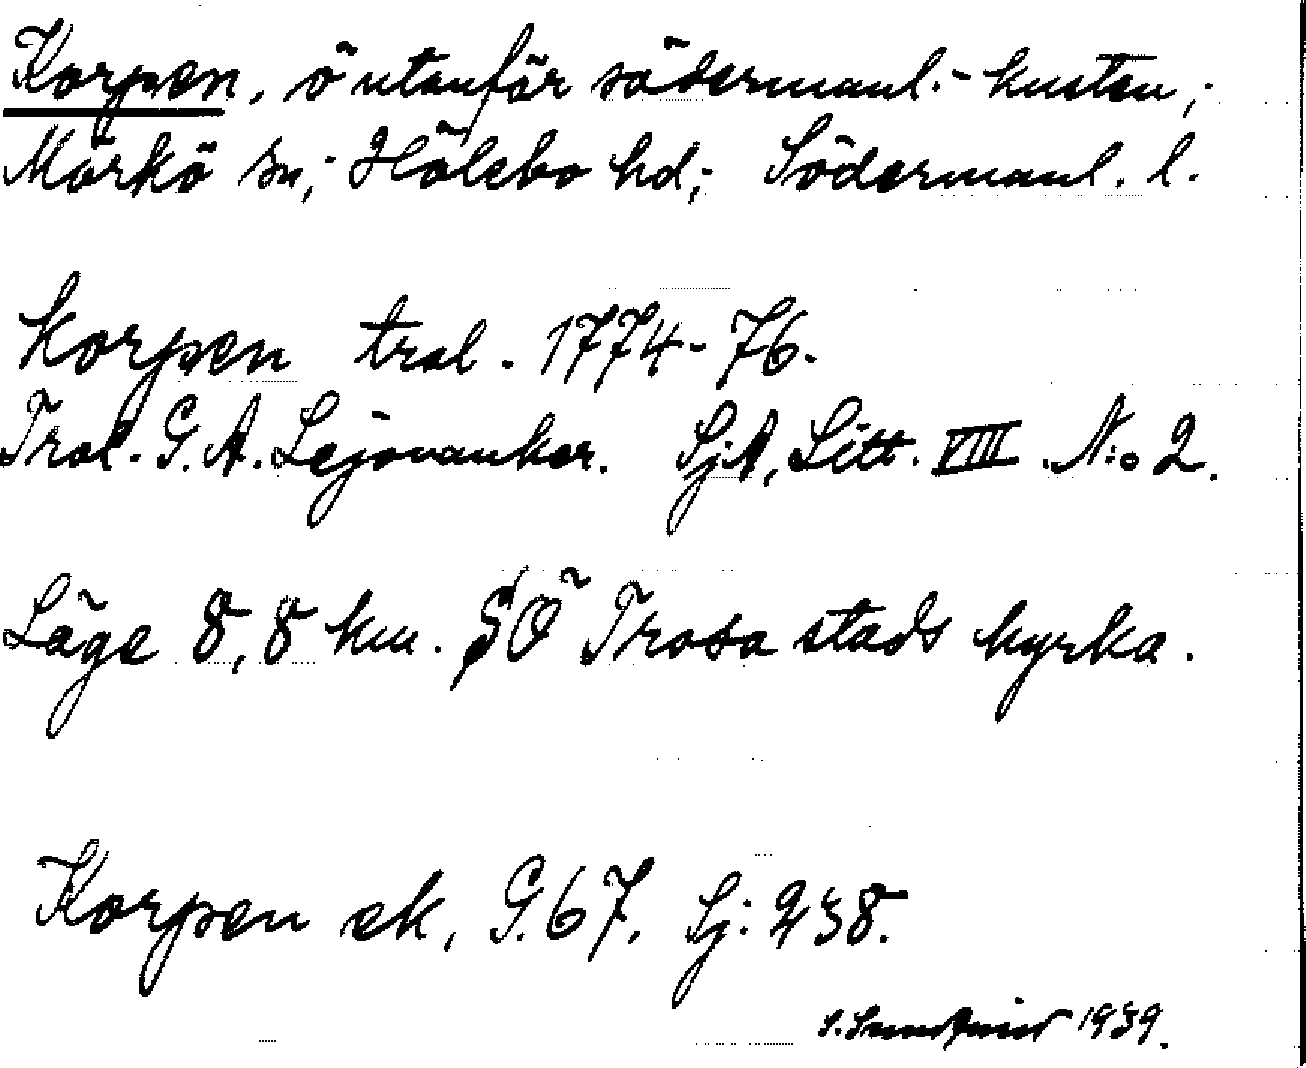 Korpen, ö utanför södermanl.- kusten;
Mörkö sn; Hölebo hd; Södermanl. l.
Korpen tral. 1774-76.
Tral. G. A. Lejonanker. SjA, Litt. VIII N:o 2.
Läge 8,8 km. SÖ Trosa stads kyrka.
Korpen ek, G. 67, Sj: 238.
1939.